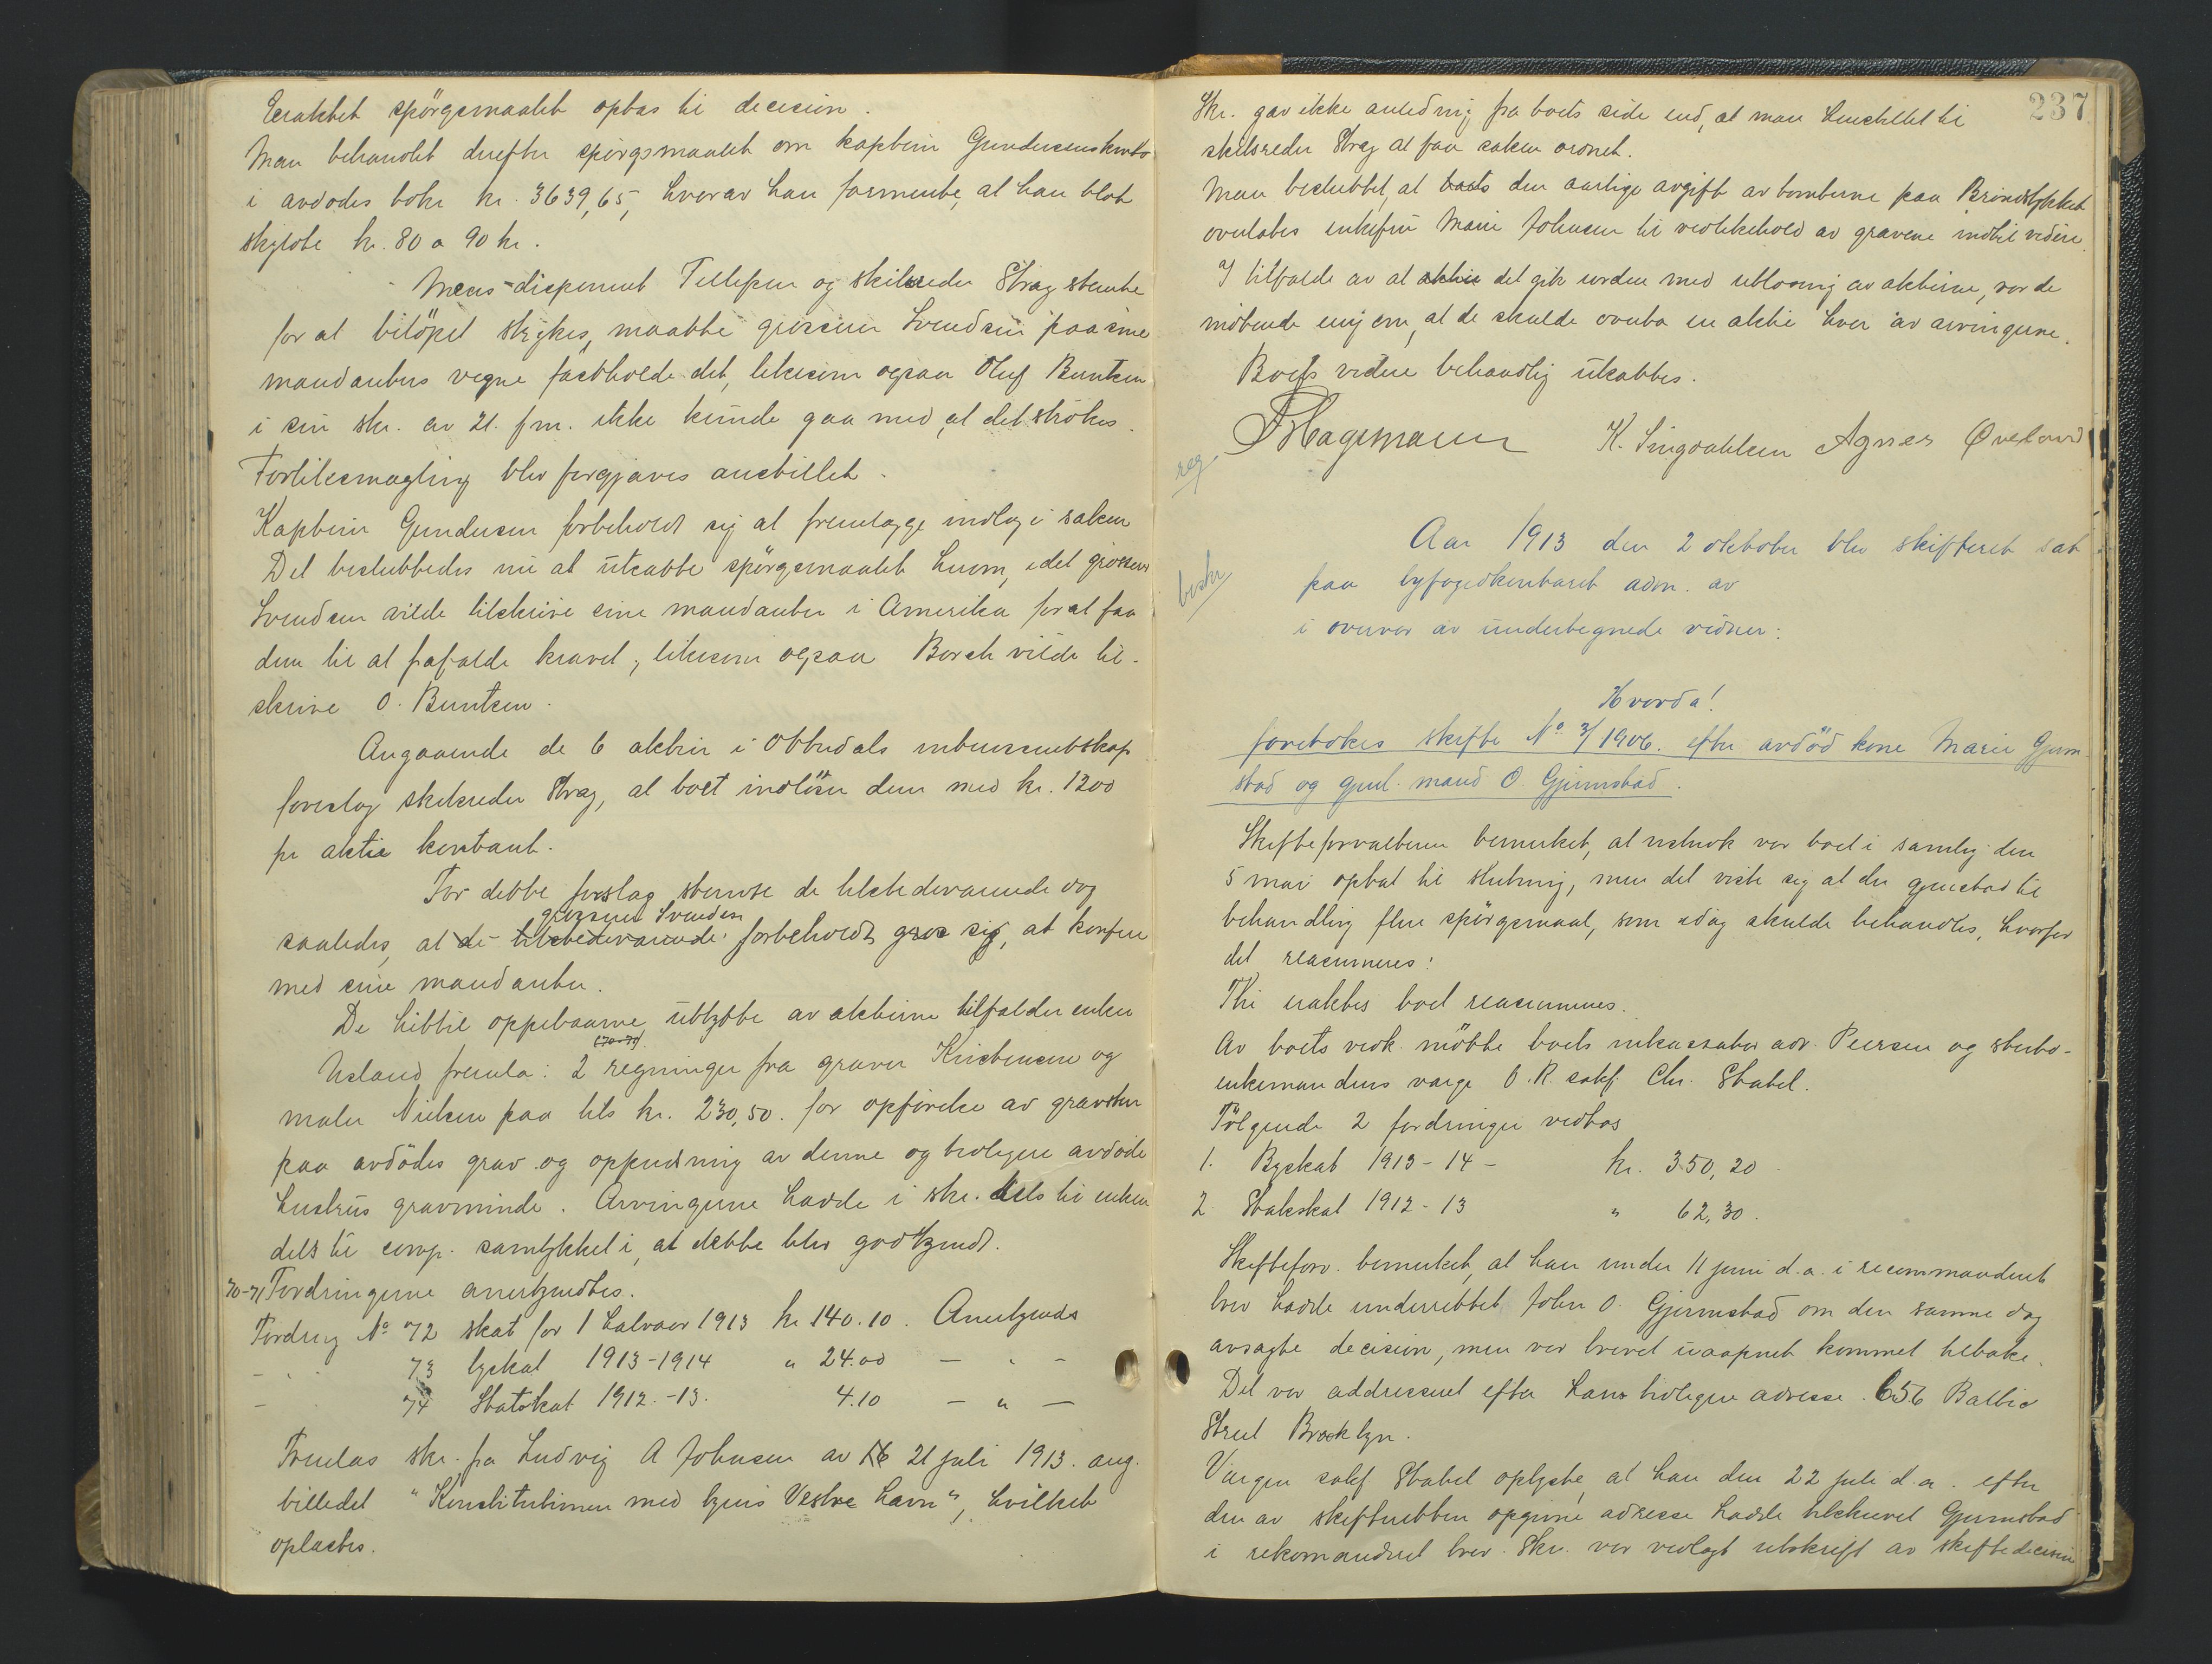 Eraktet spörgsmaalet optas til decision.
Man behandlet derefter spörgsmaalet om kaptein Gundersens konto
i avdødes bøker kr. 3639,65, hvorav han formente, at han blot
skyldte kr. 80 a 90 kr.
Mens disponent Tellefsen og skibsreder Stray stemte
for at beløpet strykes, maatte grosserer Svendsen paa sine
mandanters vegne fastholde det, likesom ogsaa Oluf Buntzen
i sin skr. av 21. f m. ikke kunde gaa med, at det strökes.
Forlikesmægling blev forgjæves anstillet.
Kaptein Gundersen forbeholdt sig at fremlægge indlæg i saken
Det besluttedes nu at utsætte spörgsmaalet herom, idet grosserer
Svendsen vilde tilskrive sine mandanter i Amerika for at faa
dem til at frafalde kravet, likesom ogsaa Borch vilde til-
skrive O. Buntzen.
Angaaende de 6 aktier i Ottredals interessentskap
foreslog skibsreder Stray, at boet indlöser dem med kr. 1200
pr aktie kontant.
For dette forslag stemte de tilstedeværende dog
grosserer Svendsen
saaledes, at de tilstedeværende forbeholdt gros sig, at konferere
med sine mandanter.
De hittil oppebaarne utbytte av aktierne tilfalder enken
(70-71)
Usland fremla: 2 regninger fra graver Kristensen og
maler Nielsen paa tils kr. 230,50. for opförelse av gravsten
paa avdödes grav og oppudsning av denne og tidligere avdöde
hustrus gravminde. Arvingerne hadde i skr. dels til enken
dels til comp. samtykket i, at dette blev godkjendt.
70-71 Fordringerne anerkjendtes.
Fordring No 72 skat for 1 halvaar 1913 kr 140.10. Anerkjendt
- " - 73 byskat 1913-1914 " 24.00 - " -
- 74 Statskat 1912-13. 4.10 - " -
Fremlas skr. fra Ludvig A Johnsen av 16 21 juli 1913. ang.
billedet "Konstitutionen med byens Vestre havn", hvilket
oplæstes.
237
Skr. gav ikke anledning fra boets side end, at man henstillet til
skibsreder Stray at faa saken ordnet.
Man besluttet, at boets den aarlige avgift av tomterne paa Bröndstykket
overlates enkefru Marie Johnsen til vedlikehold av gravene indtil videre
I tilfælde av at aktie det gik iorden med utlosning av aktierne, var de
mötende enig om, at de skulde overta en aktie hver av arvingerne.
Boets videre behandling utsattes.
F Hagemann K. Lingdahlsen Agnes Øveland
reg.
Aar 1913 den 2 oktober blev skifteret sat
paa byfogedkontoret adm. av
i overvær av undertegnede vidner:
beskr
Hvorda!
foretokes skifte No 3/1906. efter avdöd kone Marie Gjerm-
stad og gjenl. mand O. Gjermstad.
Skifteforvalteren bemerket, at nestnok var boet i samling den
5 mai optat til slutning, men det viste sig at der gjenstod til
behandling flere spörgsmaal, som idag skulde behandles, hvorfor
det reasumeres:
Thi eraktes boet reasumeres.
Av boets vedk. mötte boets inkassator adv. Peersen og sterbo-
enkemandens værge O.R. sakf. Chr. Stabel.
Følgende 2 fordringer vedtas
1. Byskat 1913-14 - kr. 350,20
2 Statskat 1912-13 " 62,30.
Skifteforv. bemerket, at han under 11 juni d.a. i recommanderet
brev hadde underrettet John O. Gjermstad om den samme dag
avsagte decision, men var brevet uaapnet kommet tilbake.
Det var addresseret efter hans tidligere adresse 656 Baltic
Street Brooklyn.
Værgen sakf Stabel oplyste, at han den 22 juli d.a. efter
den av skifteretten opgivne adresse hadde tilskrevet Gjermstad
i rekomanderet brev. Skr. var vedlagt utskrift av skiftedecision